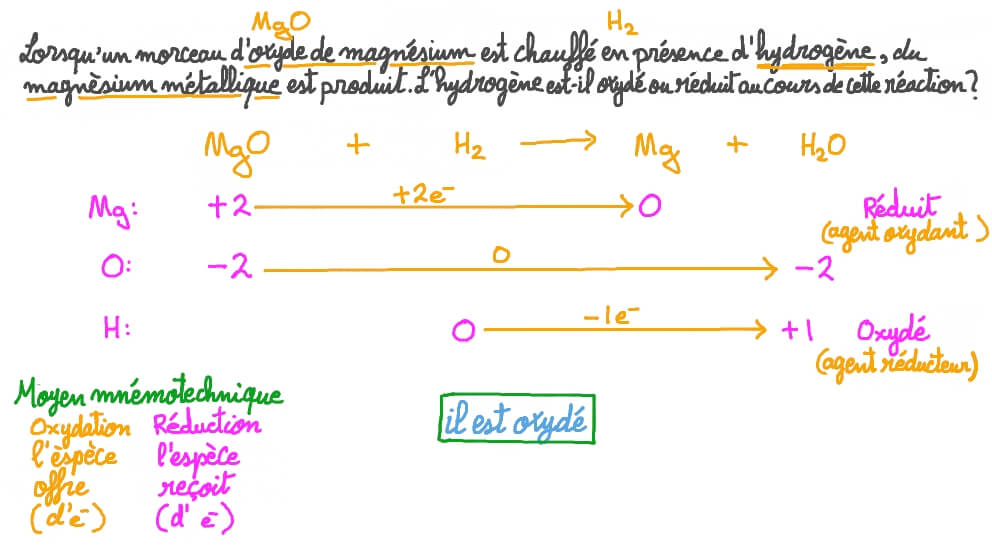 MgO H₂
Lorsqu'un morceau d'oxyde de magnésium est chauffé en présence d'hydrogène, du
magnèsium métallique est produit. L'hydrogène est-il oxydé ou réduit au cours de cette réaction?
MgO + H₂ → Mg + H₂O
+2e⁻
Mg: +2 0 Réduit
(agent oxydant)
0
O: -2 -2
-1e⁻
H: 0 +1 Oxydé
(agent réducteur)
Moyen mnémotechnique
Oxydation Réduction
l'èspèce l'espèce
offre reçoit
(d'e⁻) (d' e⁻)
il est oxydé